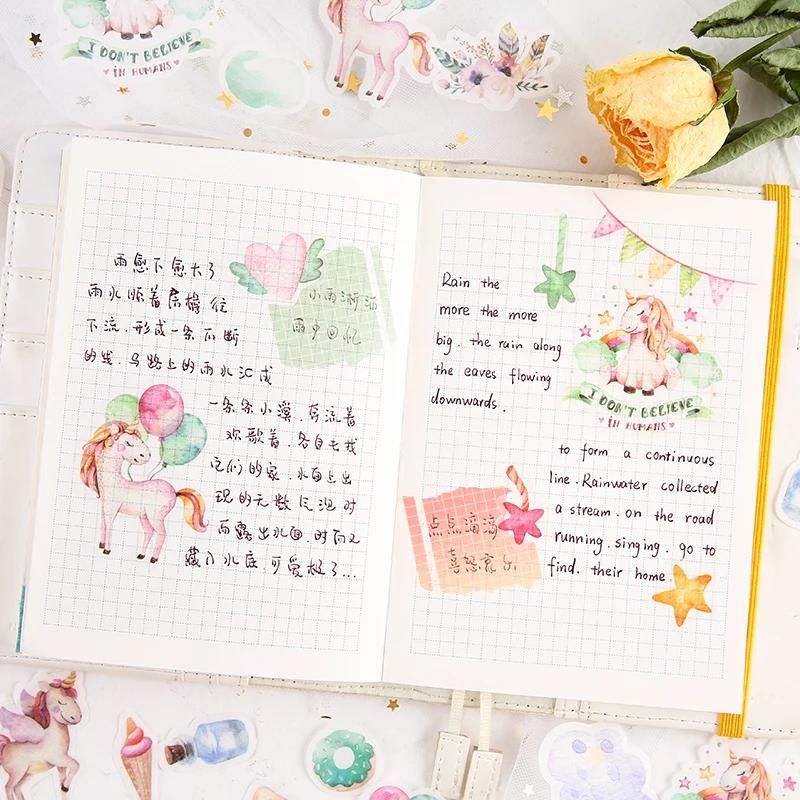 I DON'T BELIEVE
IN HUMANS
雨愈下愈大了
雨水顺着房檐往
下流.形成一条不断
的线.马路上的雨水汇成
一条条小溪.奔流着
欢歌着.各自去找
它们的家.水面上出
现的无数气泡时
而露出水面.时而又
藏入水底.可爱极了...
小雨淅沥
雨中回忆
Rain the
more the more
big. the rain along
the eaves flowing
downwards.
I DON'T BELIEVE
IN HUMANS
to form a continuous
line. Rainwater collected
a stream. on the road
running. singing. go to
find. their home.
点点滴滴
喜怒哀乐
I DON'T BELIEVE